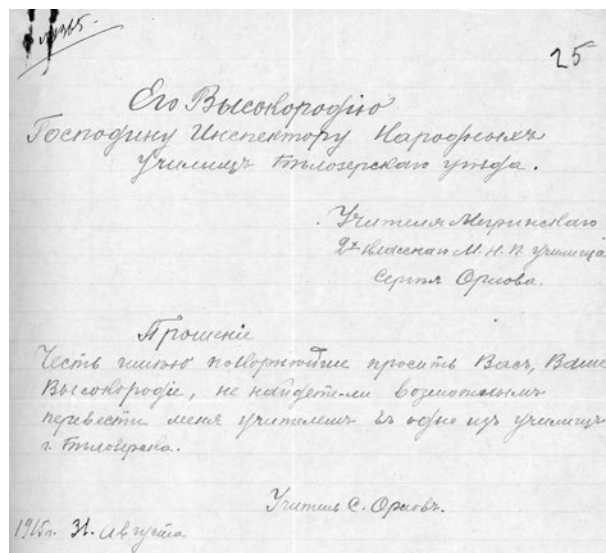 №1365
25
Его Высокородію
Господину Инспектору Народныхъ
Училищъ Бѣлозерскаго уѣзда.
Учителя Мегринскаго
2х класснаго М. Н. П. училища
Сергѣя Орлова.
Прошеніе
Честь имѣю покорнѣйше просить Васъ, Ваше
Высокородіе, не найдете ли возможнымъ
перевести меня учителемъ въ одно изъ училищъ
г. Бѣлозерска.
Учитель С. Орловъ.
1915г. 31. августа